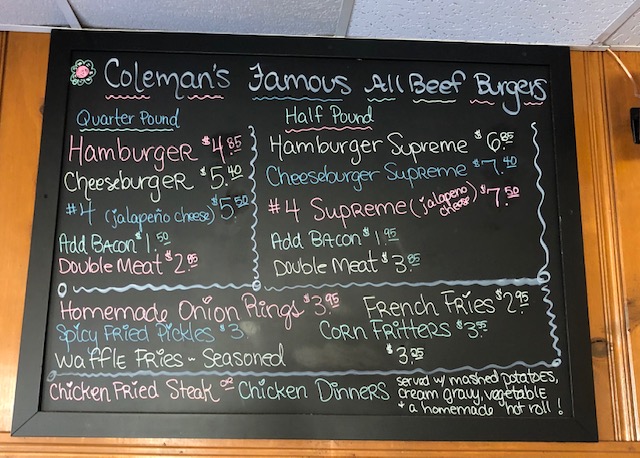 Coleman's Famous All Beef Burgers
Quarter Pound
Hamburger $4.85
Cheeseburger $5.40
#4 (jalapeño cheese) $5.50
Add Bacon $1.50
Double Meat $2.95
Half Pound
Hamburger Supreme $6.85
Cheeseburger Supreme $7.40
#4 Supreme (jalapeño cheese) $7.50
Add Bacon $1.95
Double Meat $3.85
Homemade Onion Rings $3.95 French Fries $2.95
Spicy Fried Pickles $3. Corn Fritters $3.95
Waffle Fries ~ Seasoned $3.25
Chicken Fried Steak or Chicken Dinners
served w/ mashed potatoes,
cream gravy, vegetable
+ a homemade hot roll!